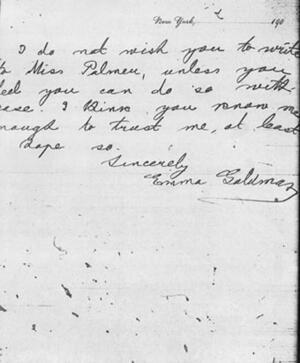 New York, 190
I do not wish you to write
to Miss Palmer, unless you
feel you can do so with-
ease. I think you know me
enough to trust me, at least
I hope so.
Sincerely
Emma Goldman